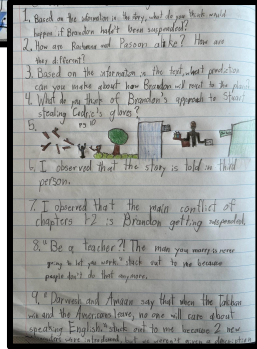 1. Based on the information in the story, what do you think would
happen if Brandon hadn't been suspended?
2. How are and Pasoon alike? How are
they different?
3. Based on the information in the text, what prediction
can you make about how Brandon will react to the
4. What do you think of Brandon's approach to Stuart
stealing Cedric's gloves?
5.
6. I observed that the story is told in third
person.
7. I observed that the main conflict of
chapters 1-2 is Brandon getting suspended.
8. "Be a teacher?! The man you marry is never
going to let you work," stuck out to me because
people don't do that anymore.
9. Darwesh and Amaan say that when the Taliban
win and the Americans leave, no one will care about
speaking English," stuck out to me because 2 new
were introduced, but we weren't given a description